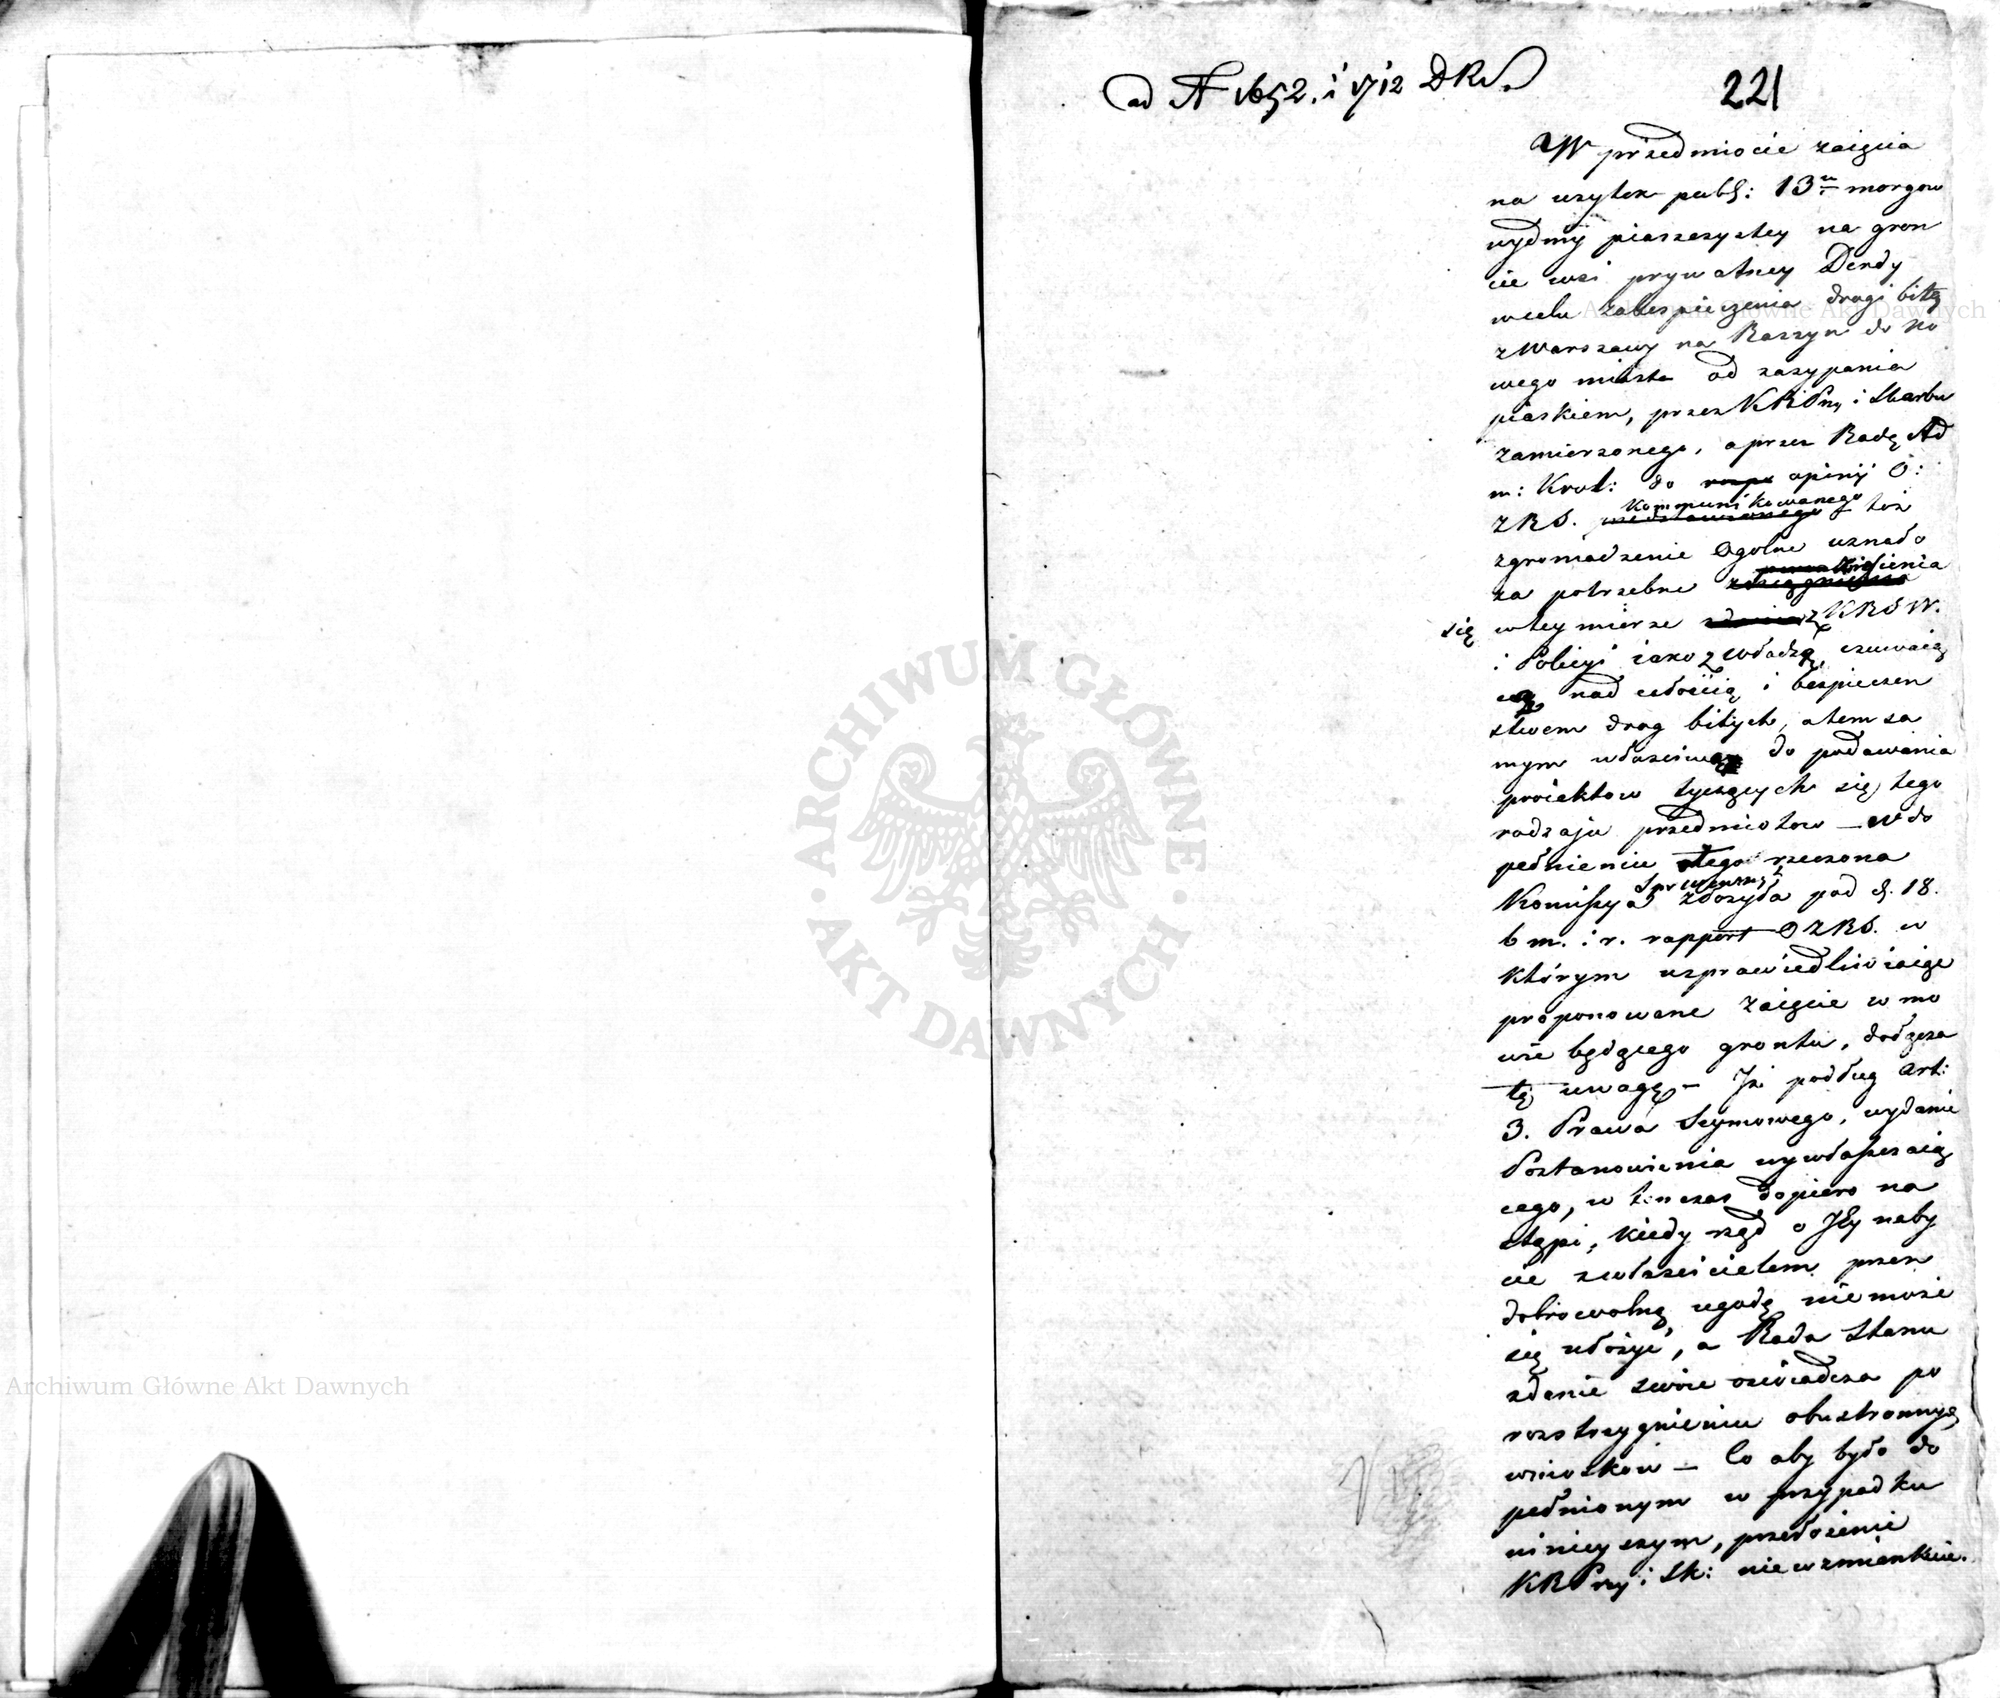 ad N 1652. i 1712 DRS.
221
W przedmiocie zaięcia
na użytek publ: 13u morgow
wydmy piaszczystey na gron
cie wsi prywatney Dendy
wcelu zabespieczenia drogi bitey
z Warszawy na Raszyn do No
wego miasta od zasypania
piaskiem, przez KRPrzy i Skarbu
zamierzonego, a przez Radę Ad
m: Krol: do opinij O:
kommunikowanego
ZRS. przedstawionego toż
zgromadzenie Ogolne uznało
za potrzebne zniesienia
się wtey mierze z KRSW.
i Policyi iako z władzą, czuwaią
cą nad całością i bezpieczen
stwem drog bitych, a tem sa
mym właściwą do podawania
proiektow tyczących się tego
rodzaju przedmiotow — w do
pełnieniu tego rzeczona
Kommissya złożyła pod d. 18.
b m. i r. rapport OZRS. w
którym usprawiedliwiaiąc
proponowane zaięcie w mo
wie będącego grontu, dołącza
tę uwagę — Iż podług art:
3. Prawa Seymowego, wydanie
Postanowienia wywłaszczaią
cego, w tenczas dopiero na
stąpi, kiedy rząd o Jey naby
cie z właścicielem przez
dobrowolną ugodę nie może
się ułożyć, a Rada Stanu
zdanie swoie oświadcza po
rozstrzygnieniu obustronnych
wniosków — Co aby było do
pełnionym w przypadku
ninieyszym, przełożenie
KRPrzy i Sk: nie wzmiankuie.
Archiwum Główne Akt Dawnych
Archiwum Główne Akt Dawnych
ARCHIWUM GŁÓWNE · AKT DAWNYCH ·